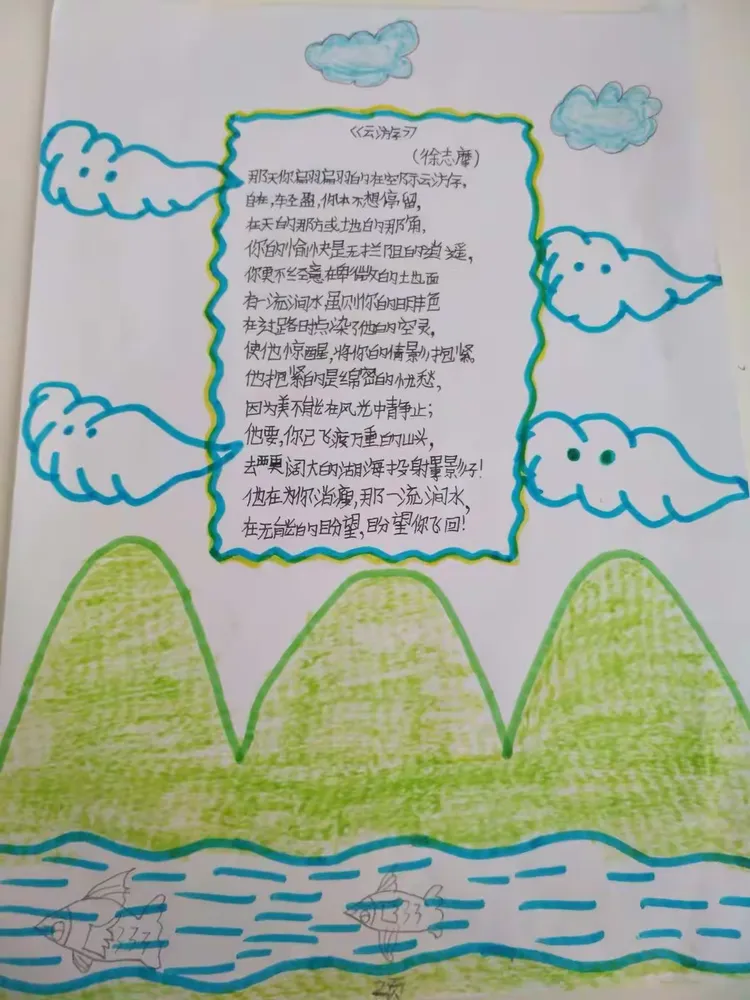 《云游》
(徐志摩)
那天你翩翩的在空际云游,
自在,轻盈,你本不想停留,
在天的那方或地的那角,
你的愉快是无拦阻的逍遥,
你更不经意在卑微的地面
有一流涧水虽则你的明艳
在过路时点染了他的空灵,
使他惊醒,将你的倩影抱紧
他抱紧的是绵密的忧愁,
因为美不能在风光中静止;
他要,你已飞渡万重的山头,
去要阔大的湖海投射影子!
他在为你消瘦,那一流涧水,
在无能的盼望,盼望你飞回!
2页